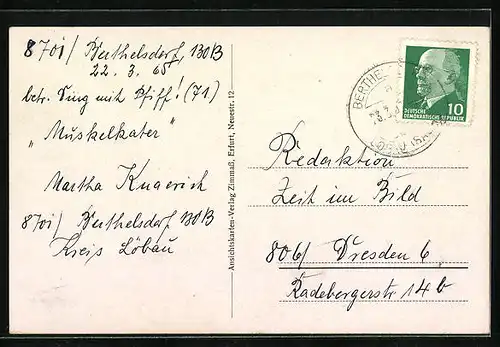 8701/ Berthelsdorf, 130B
22. 3. 65
betr. Ding mit Pfiff! (71)
"Muskelkater"
Martha Knaerich
8701/ Berthelsdorf 130B
Kreis Löbau
Ansichtskarten-Verlag Zimmaß, Erfurt, Neuestr. 12
BERTHE
DEUTSCHE
DEMOKRATISCHE REPUBLIK
10
Redaktion
Zeit im Bild
806/ Dresden 6
Radebergerstr 14b